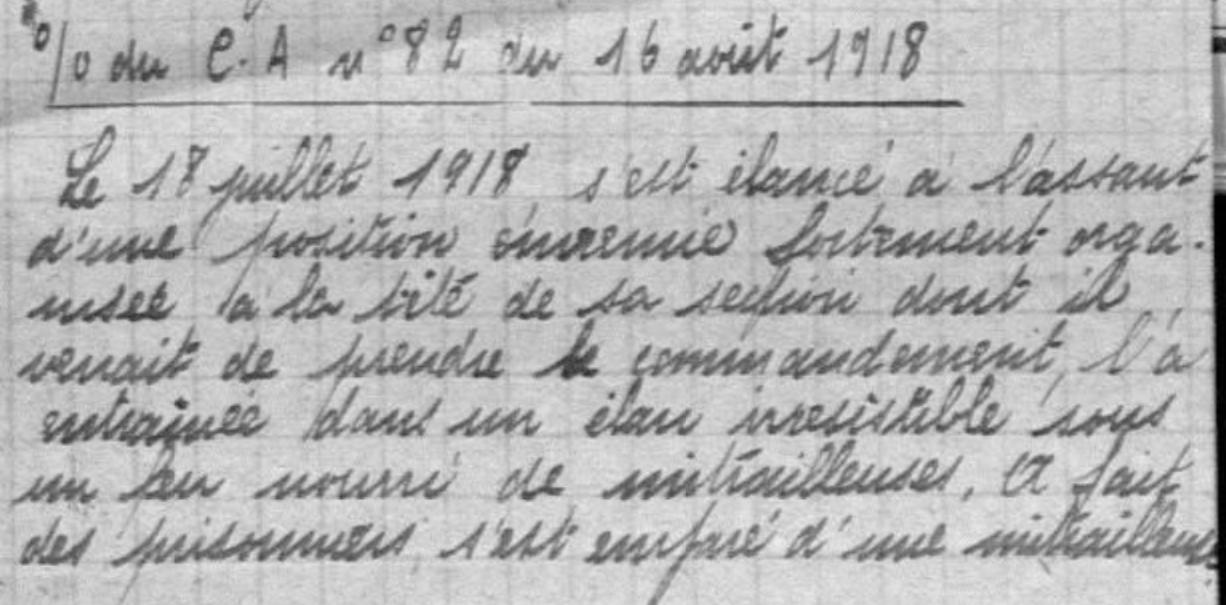 o/o du C.A n° 82 du 16 août 1918
Le 18 juillet 1918 s'est élancé à l'assaut
d'une position ennemie fortement orga-
nisée à la tête de sa section dont il
venait de prendre le commandement, l'a
entrainée dans un élan irresistible sous
un feu nourri de mitrailleuses, a fait
des prisonniers s'est emparé d'une mitrailleuse